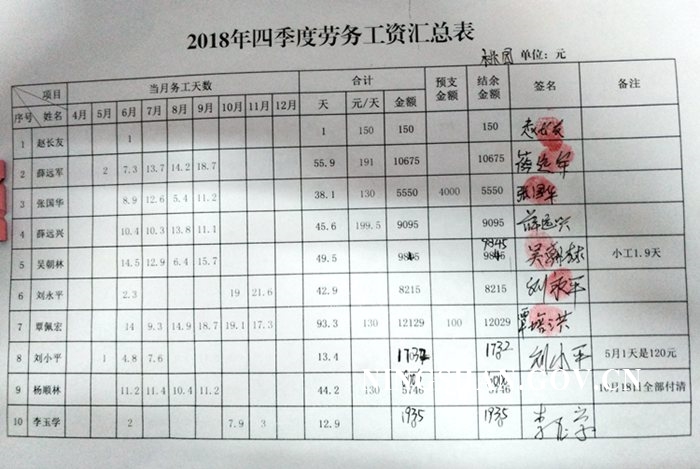 2018年四季度劳务工资汇总表
单位：元
项目 当月务工天数 合计 预支金额 结余金额 签名 备注
序号 姓名 4月 5月 6月 7月 8月 9月 10月 11月 12月 天 元/天 金额
1 赵长友 1 1 150 150 150 赵长友
2 薛远军 2 7.3 13.7 14.2 18.7 55.9 191 10675 10675 薛远军
3 张国华 8.9 12.6 5.4 11.2 38.1 130 5550 4000 5550 张国华
4 薛远兴 10.4 10.3 13.8 11.1 45.6 199.5 9095 9095 薛远兴
5 吴朝林 14.5 12.9 6.4 15.7 49.5 9845 吴朝林 小工1.9天
6 刘永平 2.3 19 21.6 42.9 8215 8215 刘永平
7 覃佩宏 14 9.3 14.9 18.7 19.1 17.3 93.3 130 12129 100 12029 覃培洪
8 刘小平 1 4.8 7.6 13.4 1732 1732 刘小平 5月1天是120元
9 杨顺林 11.2 11.4 10.4 11.2 44.2 130 5746 5746 10月18日全部付清
10 李玉学 2 7.9 3 12.9 1935 1935